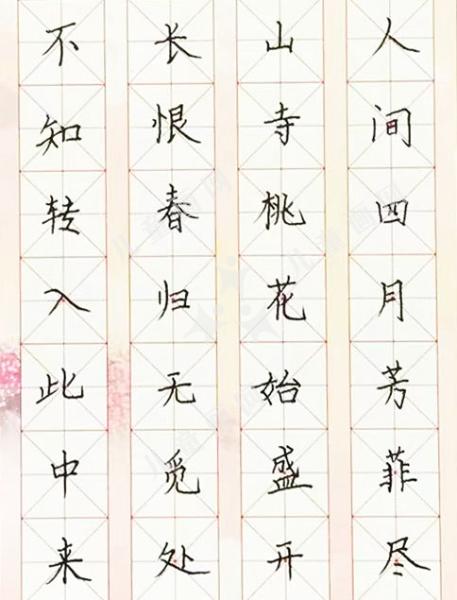 人间四月芳菲尽
山寺桃花始盛开
长恨春归无觅处
不知转入此中来